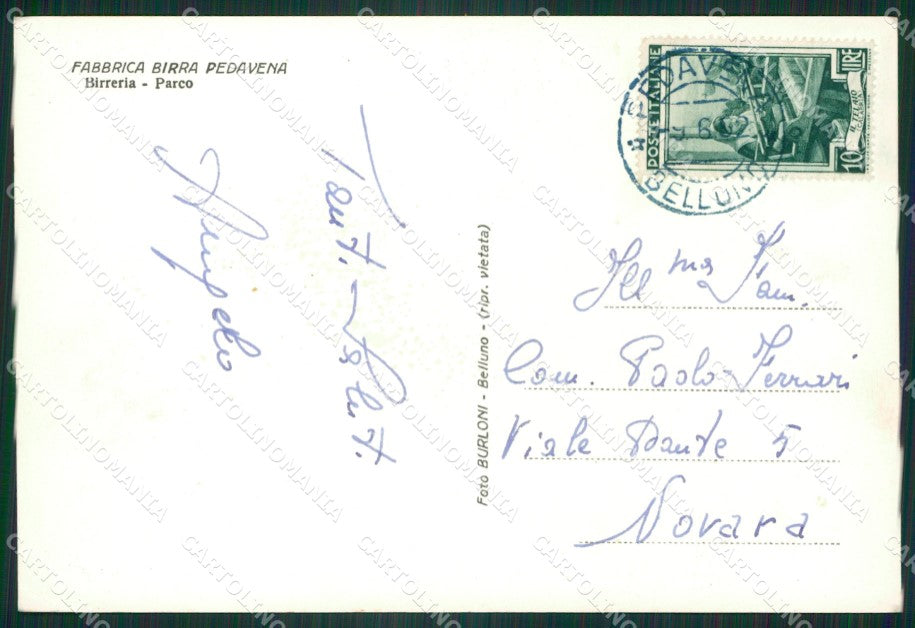 FABBRICA BIRRA PEDAVENA
Birreria - Parco
Tant. Salut.
Foto BURLONI - Belluno - (ripr. vietata)
POSTE ITALIANE
LIRE
10
PEDAVENA
BELLUNO
Ill ma Fam.
Com. Paolo Ferrari
Viale Dante 5
Novara
CARTOLINOMANIA